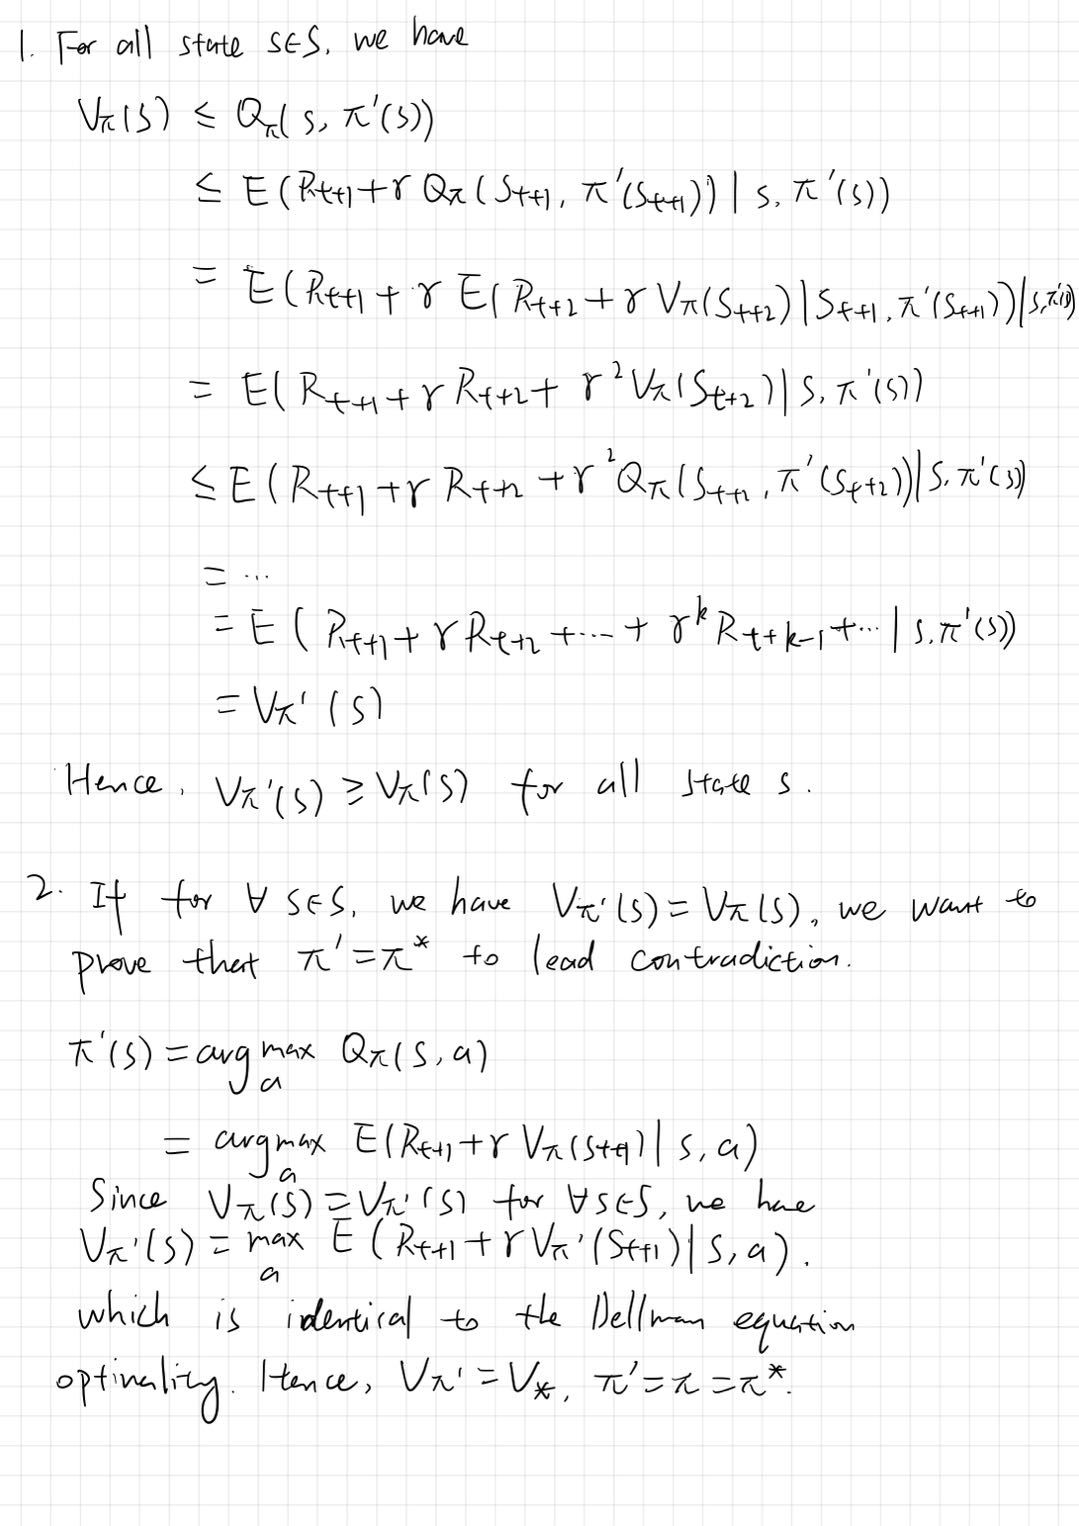 1. For all state s∈S, we have
Vπ(s) ≤ Qπ(s, π'(s))
≤ E(Rt+1+γ Qπ(St+1, π'(St+1)) | s, π'(s))
= E(Rt+1+γ E(Rt+2+γ Vπ(St+2)|St+1, π'(St+1))|s,π'(s))
= E(Rt+1+γ Rt+2+ γ²Vπ(St+2)|s, π'(s))
≤ E(Rt+1+γ Rt+2 +γ²Qπ(St+2, π'(St+2))|s, π'(s))
= ...
= E(Rt+1+γRt+2+...+ γ^k Rt+k-1+... | s, π'(s))
= Vπ'(s)
Hence, Vπ'(s) ≥ Vπ(s) for all state s.
2. If for ∀ s∈S, we have Vπ'(s) = Vπ(s), we want to
prove that π'=π* to lead contradiction.
π'(s) = argmax_a Qπ(s, a)
= argmax_a E(Rt+1+γ Vπ(St+1)| s, a)
Since Vπ(s) = Vπ'(s) for ∀s∈S, we have
Vπ'(s) = max_a E(Rt+1+γVπ'(St+1)| s, a).
which is identical to the Bellman equation
optimality. Hence, Vπ' = V*, π'=π=π*.